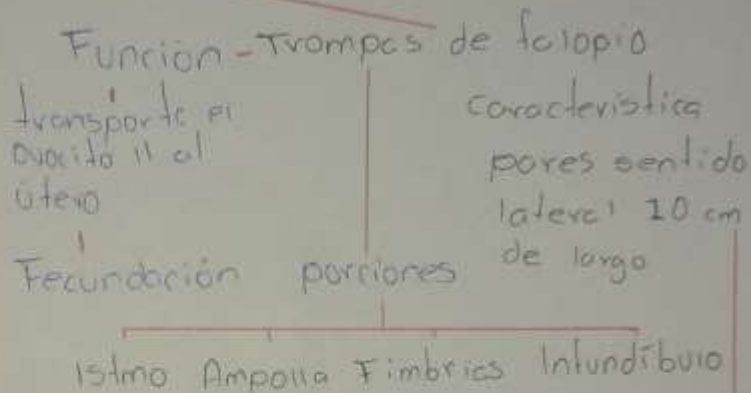 Función - Trompas de falopio
transporte el
ovocito II al
útero
Fecundación
Característica
pares sentido
lateral 10 cm
de largo
porciones
Istmo Ampolla Fimbrias Infundíbulo